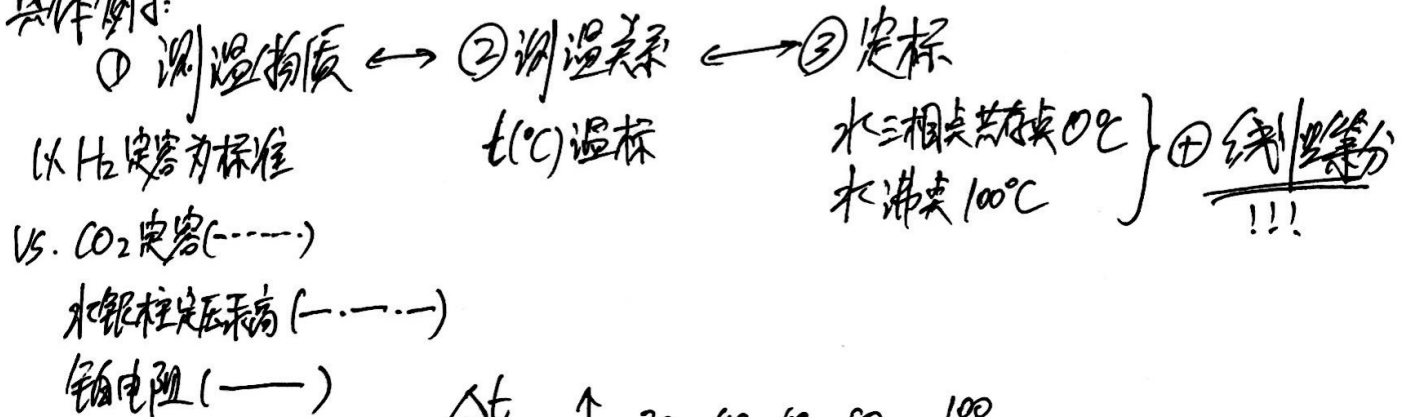 具体例子:
① 测温物质 ↔ ②测温关系 ↔ ③定标
以 H₂ 定容为标准
t(℃)温标
水三相点共存点0℃
水沸点100℃
} ⊕ 线性等分
!!!
vs. CO₂定容(------)
水银柱定压汞高(—·—·—)
铂电阻(——)
Δt ↑ 20 40 60 80 100